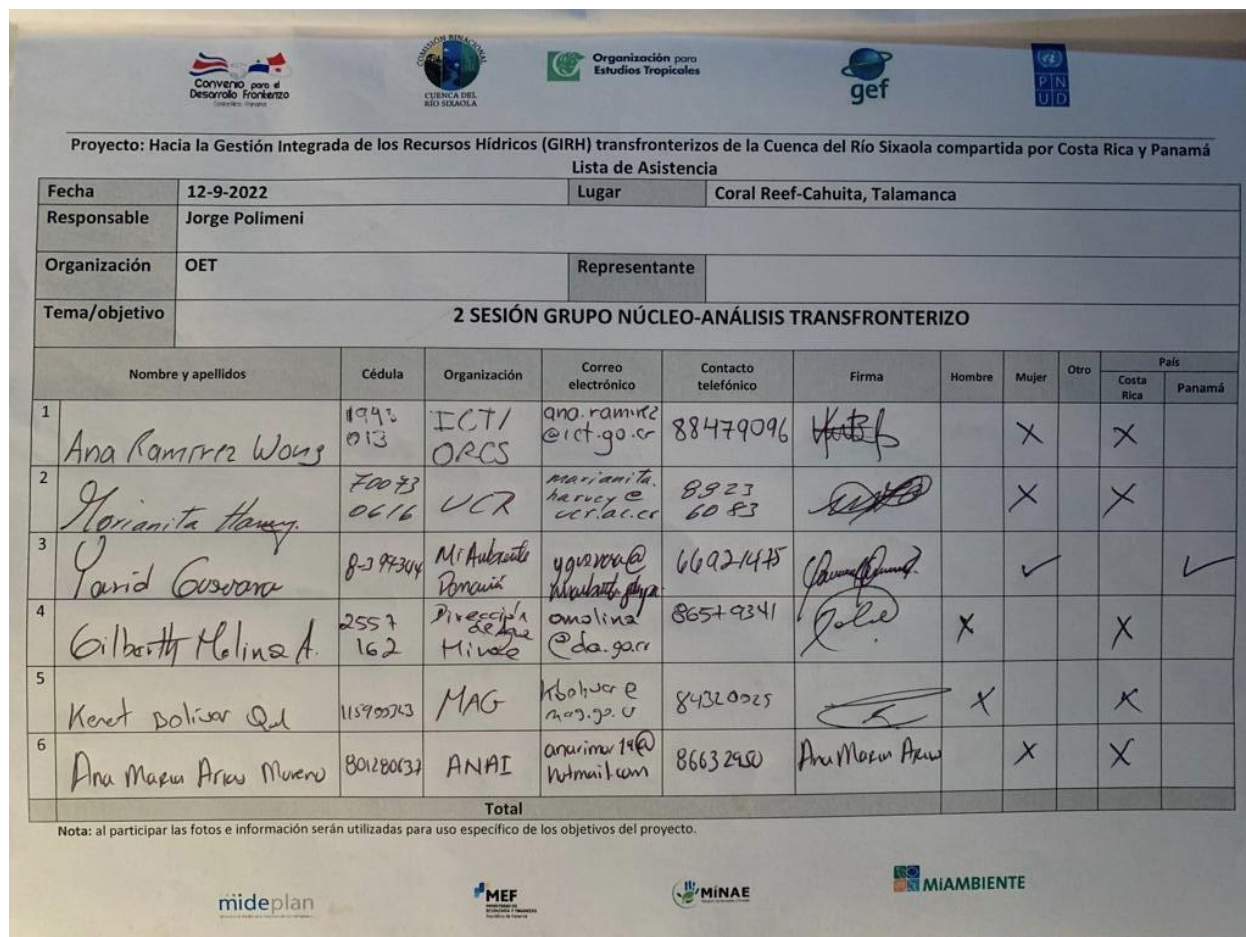 Convenio para el
Desarrollo Fronterizo
Costa Rica - Panamá
COMISIÓN BINACIONAL
CUENCA DEL
RÍO SIXAOLA
Organización para
Estudios Tropicales
gef
P N
U D
Proyecto: Hacia la Gestión Integrada de los Recursos Hídricos (GIRH) transfronterizos de la Cuenca del Río Sixaola compartida por Costa Rica y Panamá
Lista de Asistencia
Fecha 12-9-2022 Lugar Coral Reef-Cahuita, Talamanca
Responsable Jorge Polimeni
Organización OET Representante
Tema/objetivo 2 SESIÓN GRUPO NÚCLEO-ANÁLISIS TRANSFRONTERIZO
Nombre y apellidos Cédula Organización Correo electrónico Contacto telefónico Firma Hombre Mujer Otro País
Costa Rica Panamá
1 Ana Ramírez Wong 013 ICT/ ORCS ana.ramirez @ict.go.cr 88479096 X X
2 Marianita Harvey. 70073 0616 UCR marianita. harvey@ ucr.ac.cr 8923 6083 X X
3 Yavid Guevara MiAmbiente Panamá 66921475 ✓ ✓
4 Gilberth Molina A. 2557 162 Dirección de Agua Minae @da.go.cr 86579341 X X
5 Kenet Bolivar MAG kbolivar@ mag.go.cr 84320025 X X
6 Ana Maria Arias Moreno 801280637 ANAI anarimar19@ hotmail.com 86632950 Ana Maria Arias X X
Total
Nota: al participar las fotos e información serán utilizadas para uso específico de los objetivos del proyecto.
mideplan
MEF
MINISTERIO DE
ECONOMÍA Y FINANZAS
MINAE
MIAMBIENTE